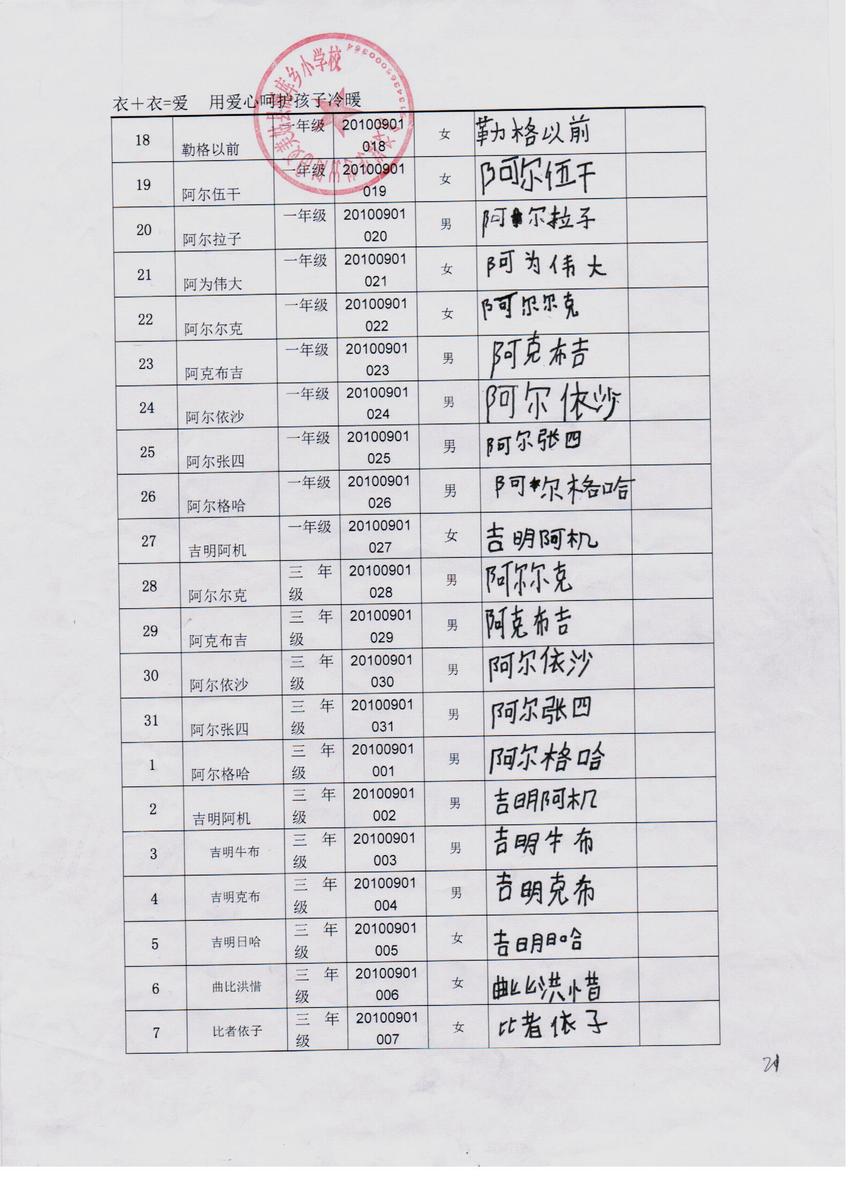 衣+衣=爱 用爱心呵护孩子冷暖
18 勒格以前 一年级 20100901018 女 勒格以前
19 阿尔伍干 一年级 20100901019 女 阿尔伍干
20 阿尔拉子 一年级 20100901020 男 阿尔拉子
21 阿为伟大 一年级 20100901021 女 阿为伟大
22 阿尔尔克 一年级 20100901022 女 阿尔尔克
23 阿克布吉 一年级 20100901023 男 阿克布吉
24 阿尔依沙 一年级 20100901024 男 阿尔依沙
25 阿尔张四 一年级 20100901025 男 阿尔张四
26 阿尔格哈 一年级 20100901026 男 阿尔格哈
27 吉明阿机 一年级 20100901027 女 吉明阿机
28 阿尔尔克 三年级 20100901028 男 阿尔尔克
29 阿克布吉 三年级 20100901029 男 阿克布吉
30 阿尔依沙 三年级 20100901030 男 阿尔依沙
31 阿尔张四 三年级 20100901031 男 阿尔张四
1 阿尔格哈 三年级 20100901001 男 阿尔格哈
2 吉明阿机 三年级 20100901002 男 吉明阿机
3 吉明牛布 三年级 20100901003 男 吉明牛布
4 吉明克布 三年级 20100901004 男 吉明克布
5 吉明日哈 三年级 20100901005 女 吉明日哈
6 曲比洪惜 三年级 20100901006 女 曲比洪惜
7 比者依子 三年级 20100901007 女 比者依子
21